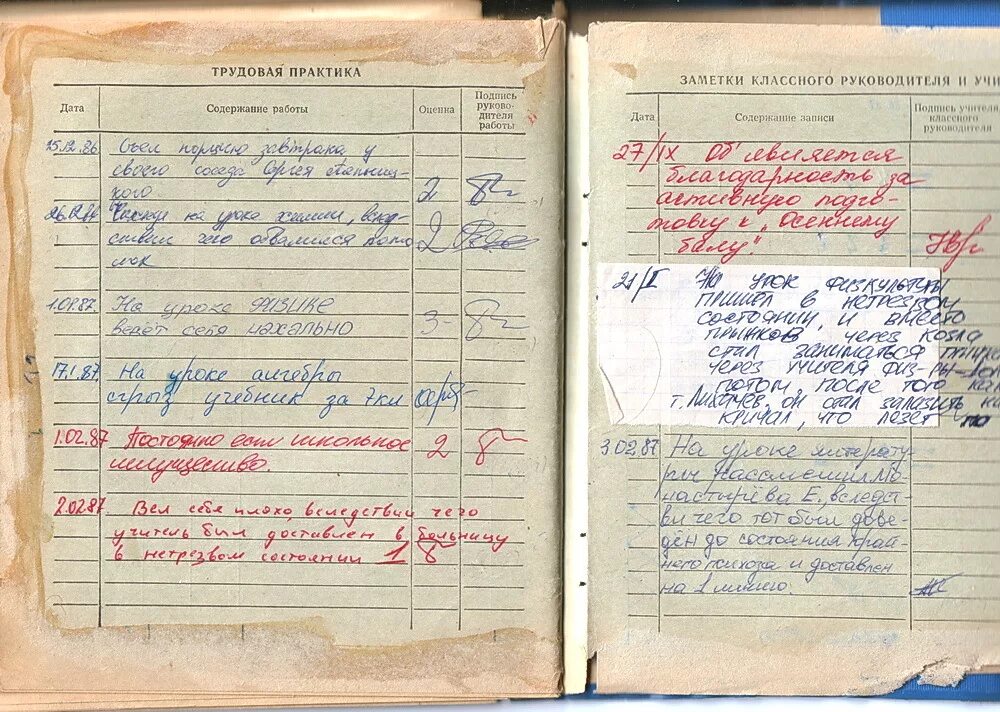 ТРУДОВАЯ ПРАКТИКА
Дата Содержание работы Оценка Подпись руково- дителя работы
25.12.86 Съел порцию завтрака у
своего соседа Сергея
кого 2
26.12.86 на уроке химии, вслед-
ствии чего обвалился пото-
лок 2
1.01.87. На уроке ФИЗИКЕ
ведёт себя нахально 3-
17.1.87. На уроке алгебры
грыз учебник за 7кл
1.02.87 Постоянно ест школьное 2
имущество.
2.02.87. Вел себя плохо, вследствии чего
учитель был доставлен в больницу
в нетрезвом состоянии 1
ЗАМЕТКИ КЛАССНОГО РУКОВОДИТЕЛЯ И УЧИ
Дата Содержание записи Подпись учителя, классного руководителя
27/IX Объявляется
благодарность за
активную подго-
товку к „Осеннему
балу".
21/I На урок физкультуры
пришел в нетрезвом
состоянии, и вместо
прыжков через козла
стал заниматься
через учителя физ-ры
потом, после того ка
т. он стал залазить на
кричал, что лезет на
3.02.87 На уроке литерату
ры рассмешил Мо-
настырёва Е, вследст-
ви чего тот был дове-
дён до состояния край-
него психоза и доставлен
на 1 линию.